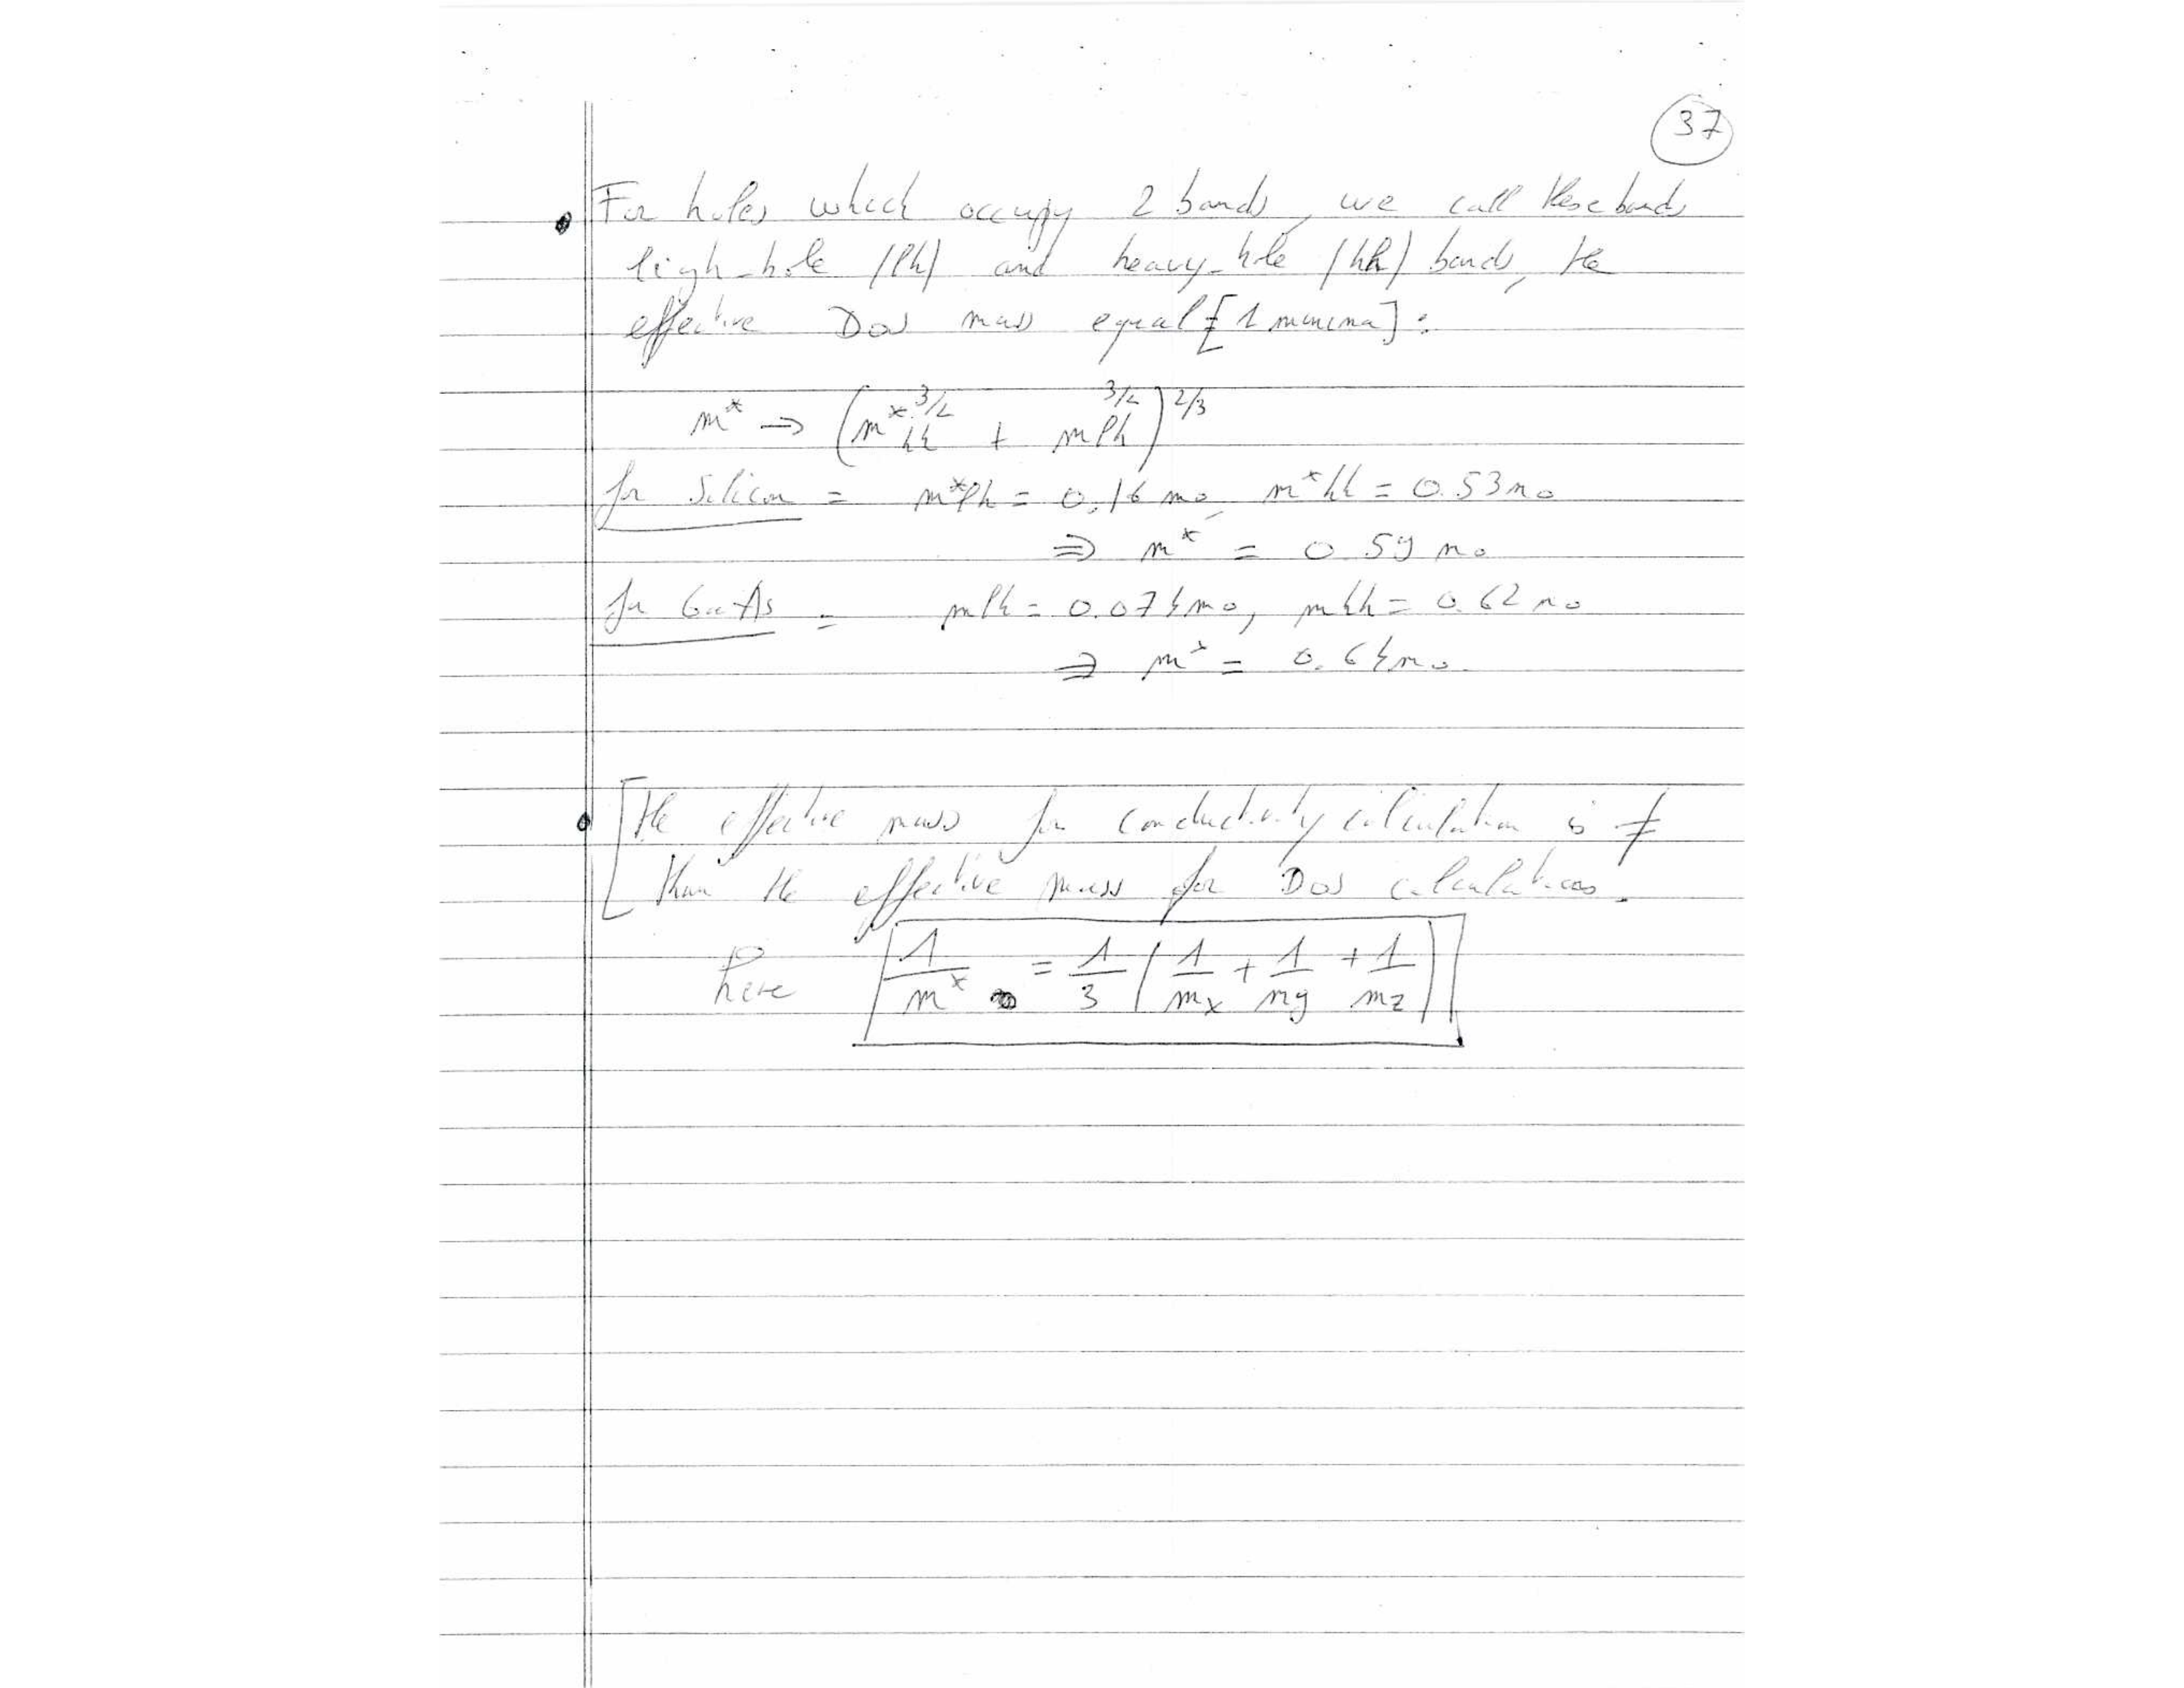 37
For holes which occupy 2 bands, we call these bands
ligh-hole (lh) and heavy-hole (hh) bands, the
effective Dos mass equal [1 minima] :
m* ⇒ (m*hh^3/2 + mlh^3/2)^2/3
for Silicon = m*lh = 0.16 mo, m*hh = 0.53 mo
⇒ m* = 0.59 mo
for GaAs = mlh = 0.074 mo, mhh = 0.62 mo
⇒ m* = 0.64 mo
[the effective mass for conductivity calculation is ≠
than the effective mass for Dos calculations.
here 1/m* = 1/3 (1/mx + 1/my + 1/mz)